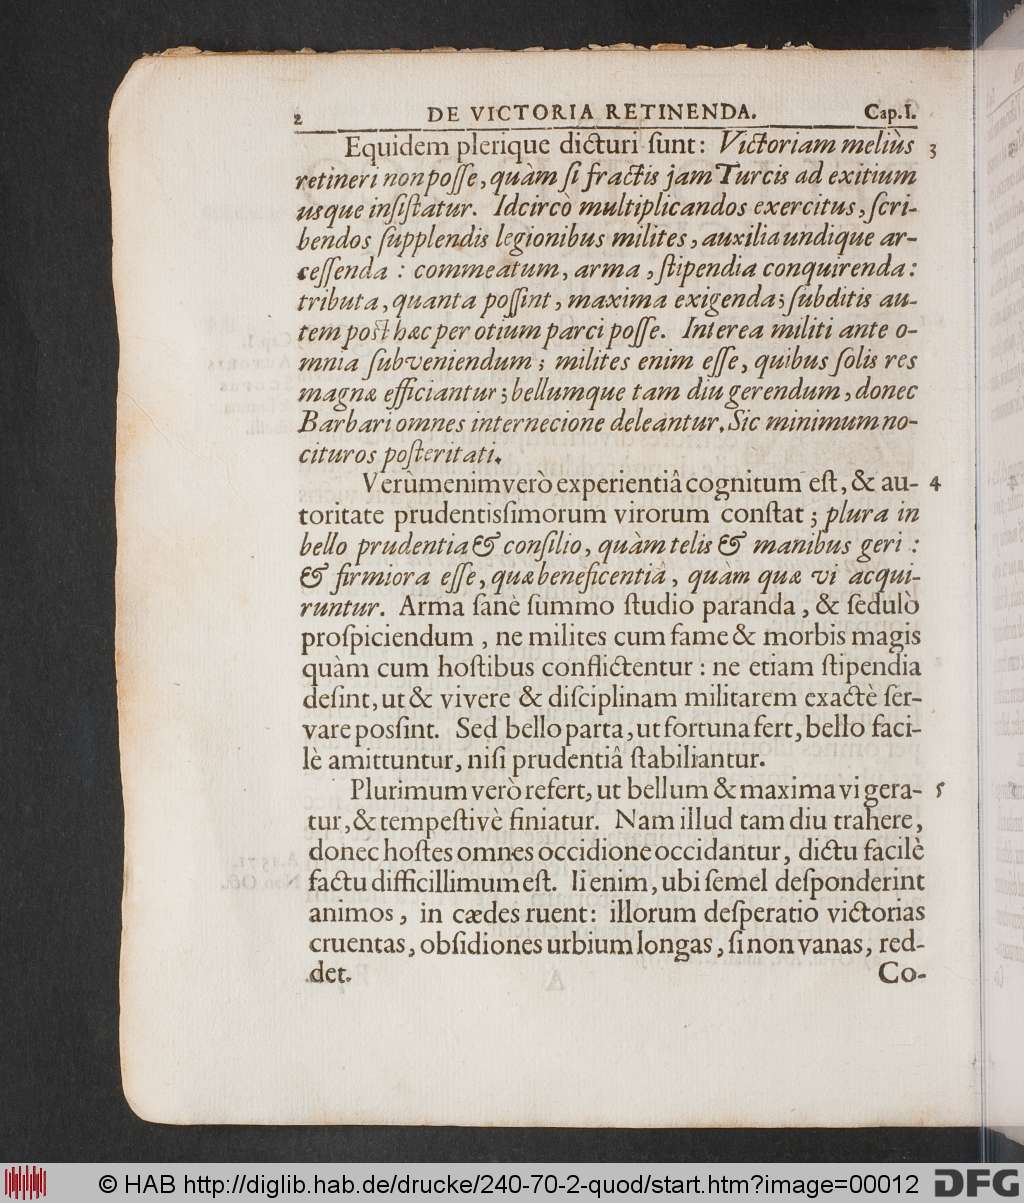 2 DE VICTORIA RETINENDA. Cap. I.
Equidem plerique dicturi ſunt: Victoriam meliùs 3
retineri non poſſe, quàm ſi fractis jam Turcis ad exitium
usque inſiſtatur. Idcircò multiplicandos exercitus, ſcri-
bendos ſupplendis legionibus milites, auxilia undique ar-
ceſſenda : commeatum, arma, ſtipendia conquirenda:
tributa, quanta poſſint, maxima exigenda; ſubditis au-
tem poſt hæc per otium parci poſſe. Interea militi ante o-
mnia ſubveniendum ; milites enim eſſe, quibus ſolis res
magnæ efficiantur; bellumque tam diu gerendum, donec
Barbari omnes internecione deleantur. Sic minimum no-
cituros poſteritati.
Verùm enimverò experientiâ cognitum eſt, & au- 4
toritate prudentisſimorum virorum conſtat ; plura in
bello prudentia & conſilio, quàm telis & manibus geri :
& firmiora eſſe, quæ beneficentiâ, quàm quæ vi acqui-
runtur. Arma ſanè ſummo ſtudio paranda, & ſedulò
proſpiciendum, ne milites cum fame & morbis magis
quàm cum hoſtibus conflictentur : ne etiam ſtipendia
deſint, ut & vivere & diſciplinam militarem exactè ſer-
vare posſint. Sed bello parta, ut fortuna fert, bello faci-
lè amittuntur, niſi prudentiâ ſtabiliantur.
Plurimum verò refert, ut bellum & maxima vi gera- 5
tur, & tempeſtivè finiatur. Nam illud tam diu trahere,
donec hoſtes omnes occidione occidantur, dictu facilè
factu difficillimum eſt. Ii enim, ubi ſemel deſponderint
animos, in cædes ruent: illorum deſperatio victorias
cruentas, obſidiones urbium longas, ſi non vanas, red-
det. Co-
© HAB http://diglib.hab.de/drucke/240-70-2-quod/start.htm?image=00012 DFG